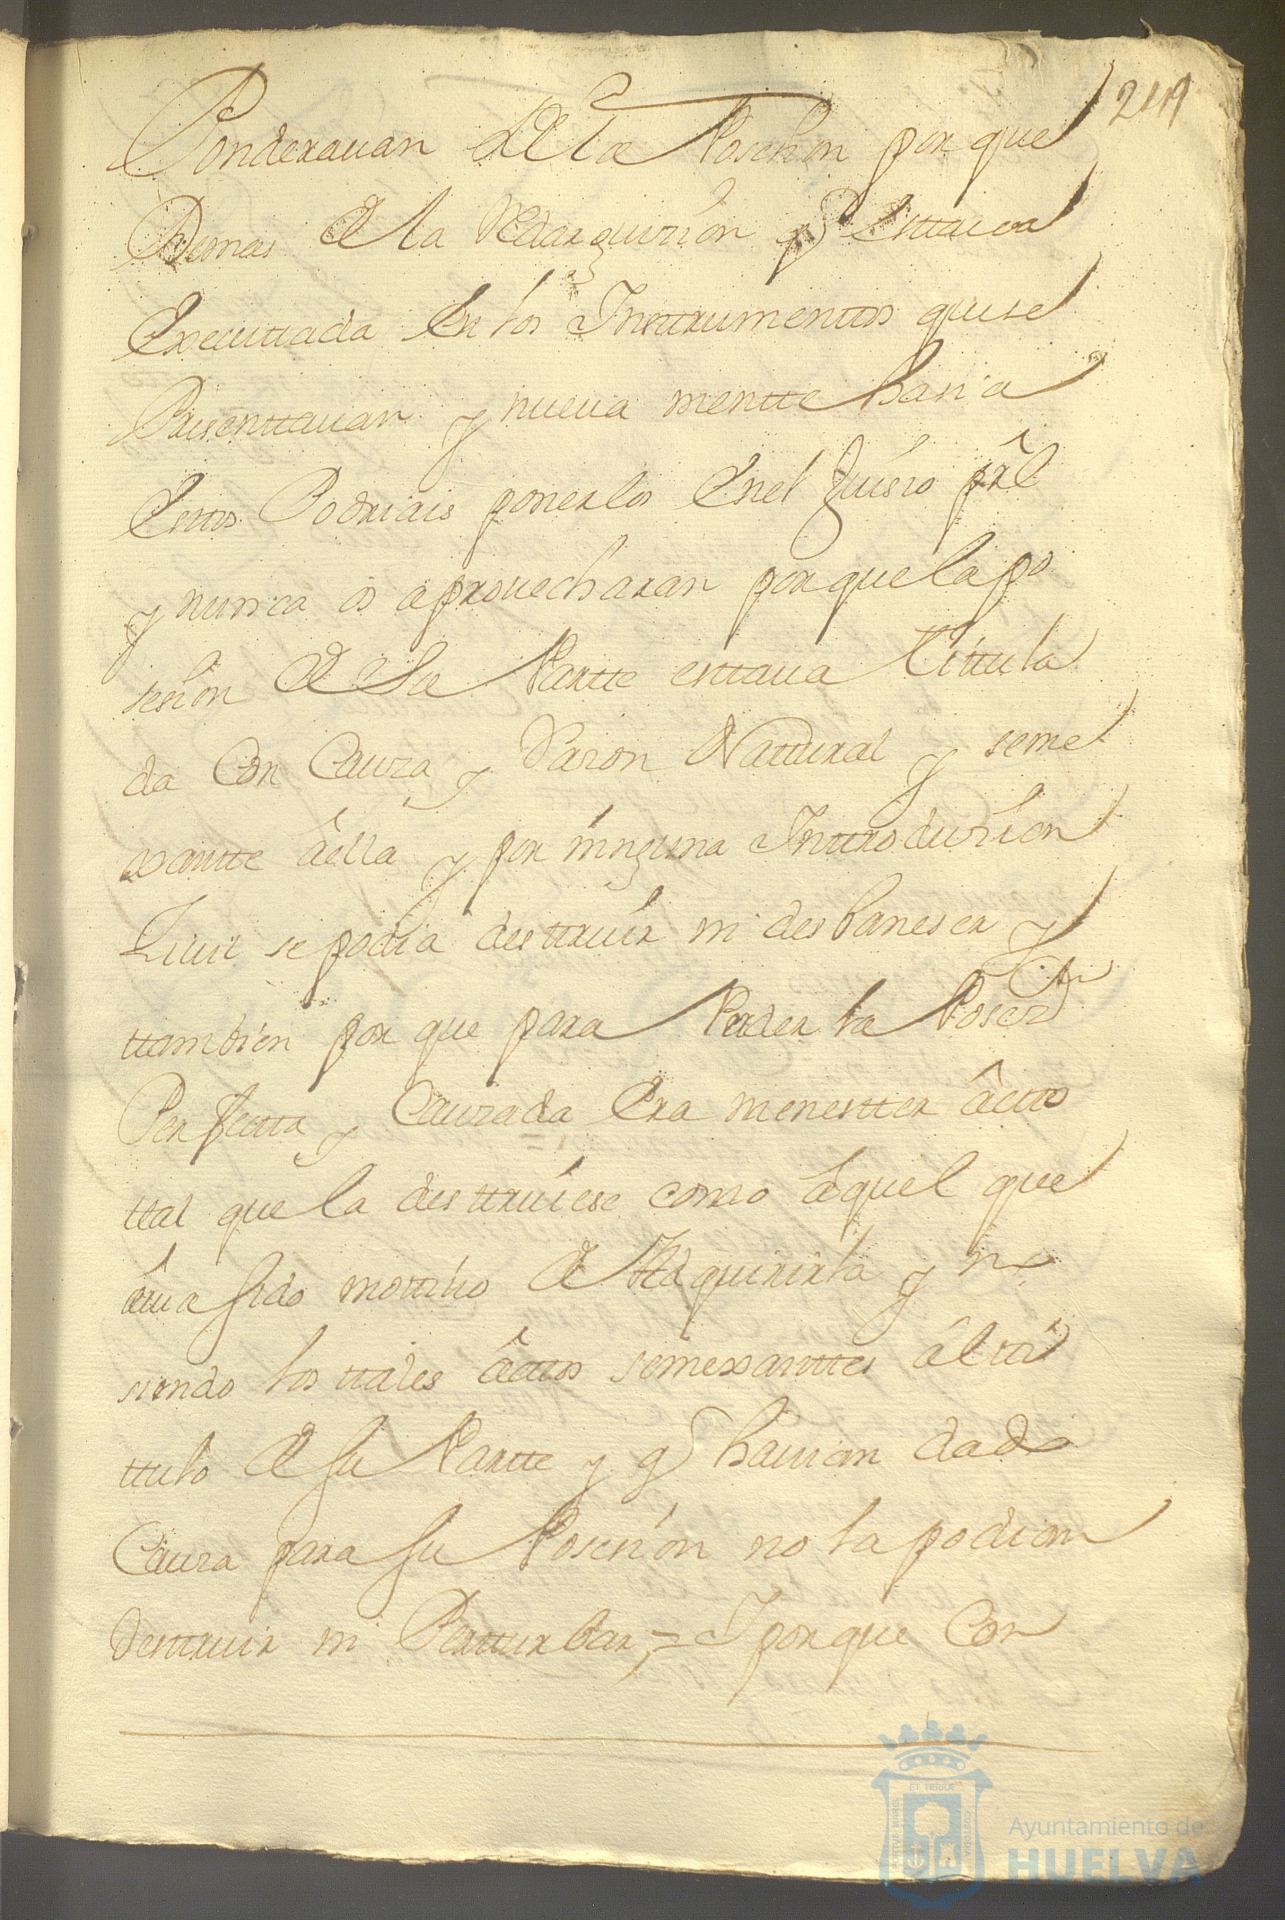 219
Ponderauan de la Poseçion porque
Demas de la Redarguizion q̃ Esttaua
Executtada En los Insttrumentos que se
Presenttauan y nueua mentte haria
Estos Podriais ponerlos En el Juisio prãl
y nunca os aprouecharan por que la po
sesion de Su Partte esttaua Tittula
da Con Cauza y Razon Natural y seme
xantte â ella y por ninguna Inttroduzion
se podia desttruir ni desbaneser y
ttambien por que para Perder la Poseⁿ
Perfectta y Cauzada Era menestter âctto
ttal que la desttruiese como aquel que
auia sido mottiuo de Adquirirla y no
siendo los ttales âcttos semexanttes âl ti
ttulo de su Partte y q̃ hauian dado
Cauza para su Poseçion no la podian
desttruir ni Pertturbar,= I porque Con
ET TERRAE
Ayuntamiento de
HUELVA